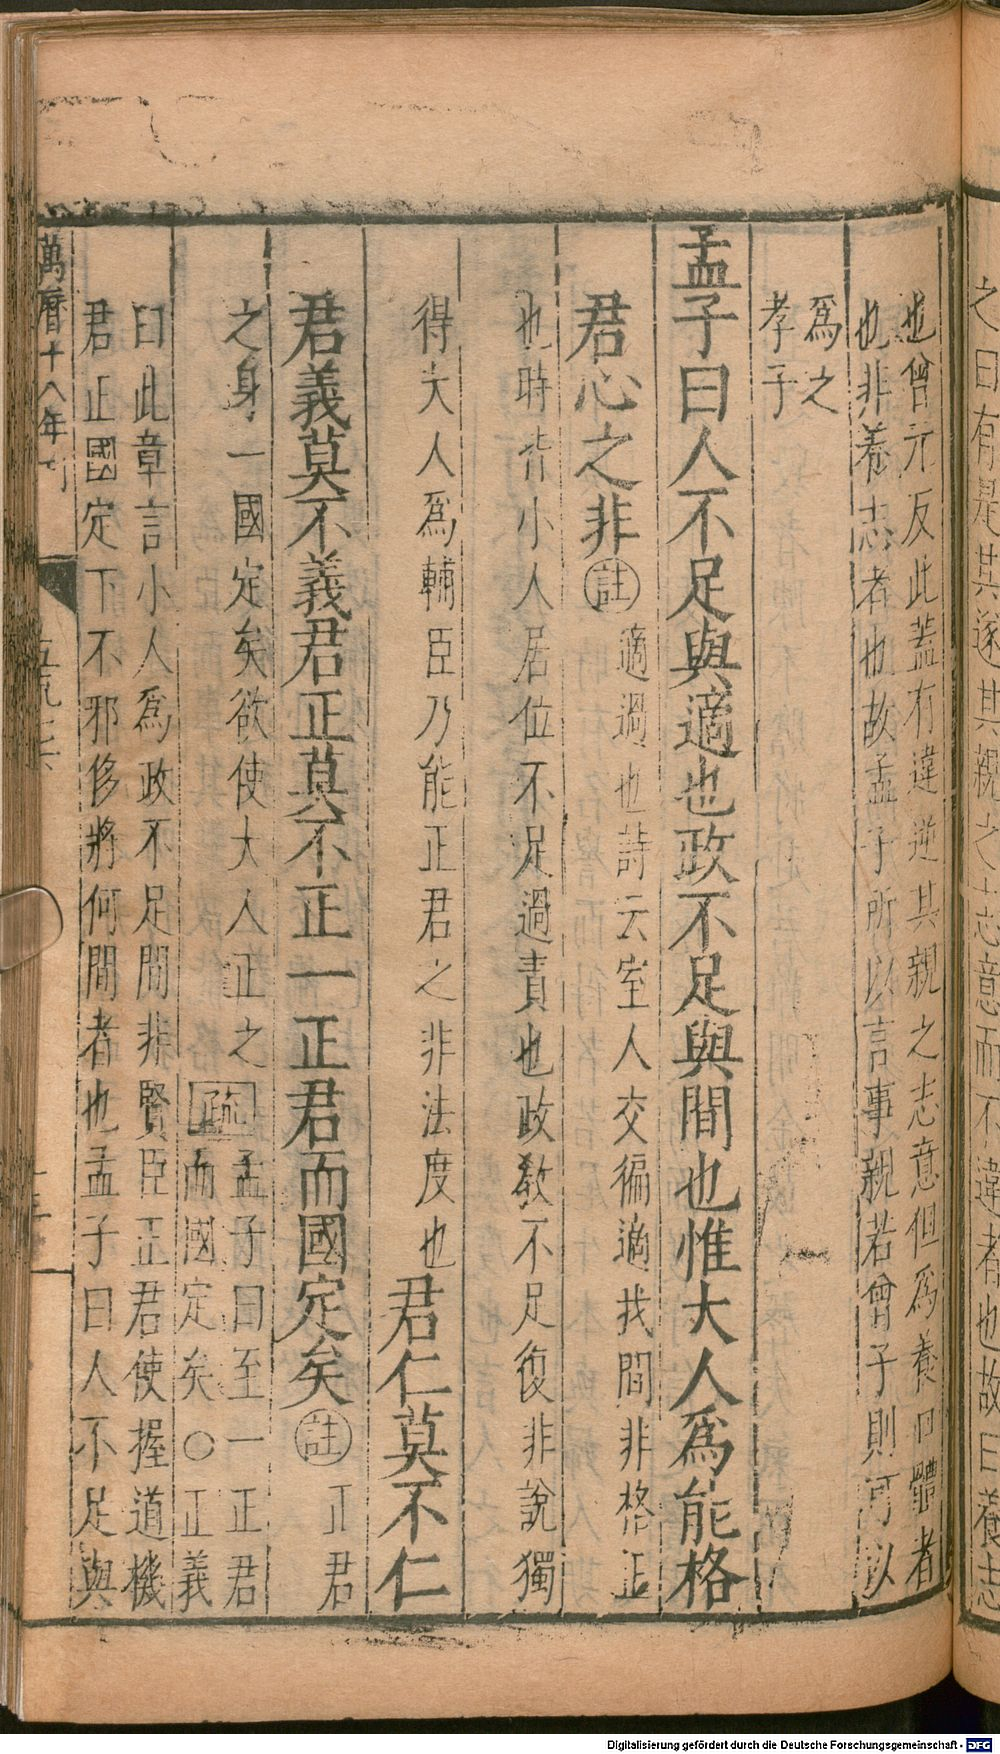 之曰有是其遂其親之志意而不違者也故曰養志
也曾元反此蓋有違逆其親之志意但爲養口體者
也非養志者也故孟子所以言事親若曾子則可以
爲之
孝子
孟子曰人不足與適也政不足與間也惟大人爲能格
君心之非註適過也詩云室人交徧適我間非格正
也時皆小人居位不足過責也政敎不足復非說獨
得大人爲輔臣乃能正君之非法度也君仁莫不仁
君義莫不義君正莫不正一正君而國定矣註正君
之身一國定矣欲使大人正之疏孟子曰至一正君
而國定矣○正義
曰此章言小人爲政不足間非賢臣正君使握道機
君正國定下不邪侈將何間者也孟子曰人不足與
萬曆十八年刊
Digitalisierung gefördert durch die Deutsche Forschungsgemeinschaft - DFG